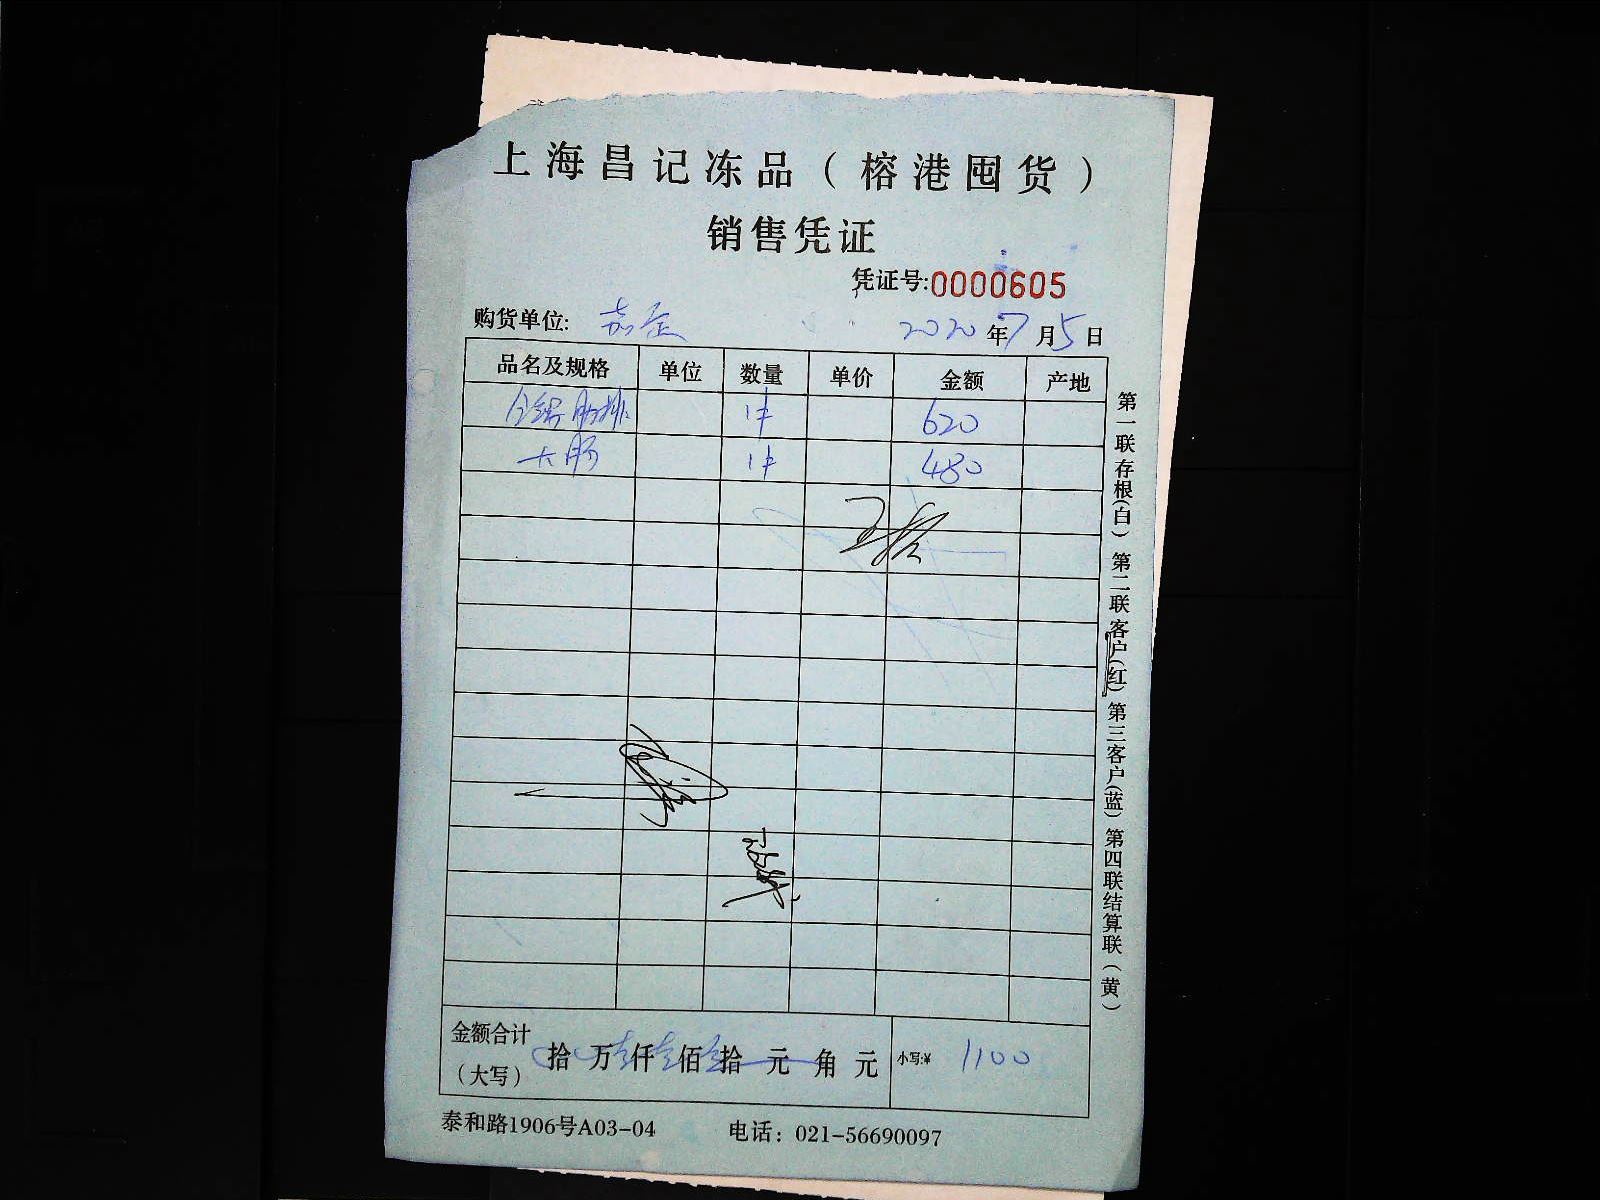 上海昌记冻品（榕港囤货）
销售凭证
凭证号:0000605
购货单位: 2020年7月5日
品名及规格 单位 数量 单价 金额 产地
肋排 1件 620
大肠 1件 480
第一联存根(白) 第二联客户(红) 第三客户(蓝) 第四联结算联(黄)
金额合计
（大写） 拾 万壹仟壹佰 拾 元 角 元 小写:¥ 1100
泰和路1906号A03-04 电话：021-56690097